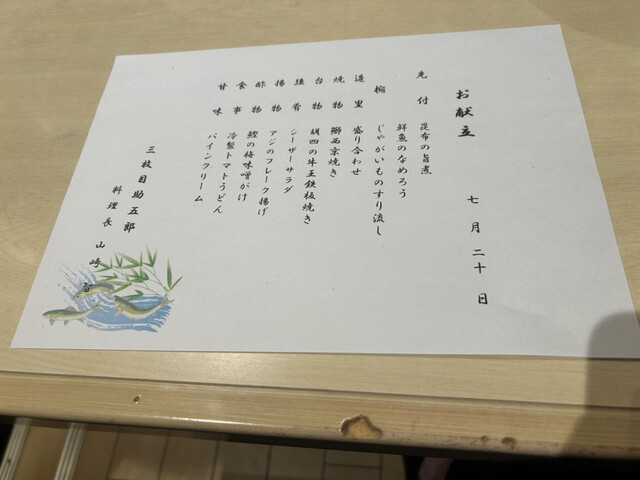 お献立 七月二十日
先付 昆布の旨煮
鮮魚のなめろう
椀 じゃがいものすり流し
造里 盛り合わせ
焼物 鰤西京焼き
台物 胡四の牛王鉄板焼き
強肴 シーザーサラダ
揚物 アジのフレーク揚げ
酢物 の梅味噌がけ
食事 冷製トマトうどん
甘味 パインクリーム
三枚目助五郎
料理長 山崎